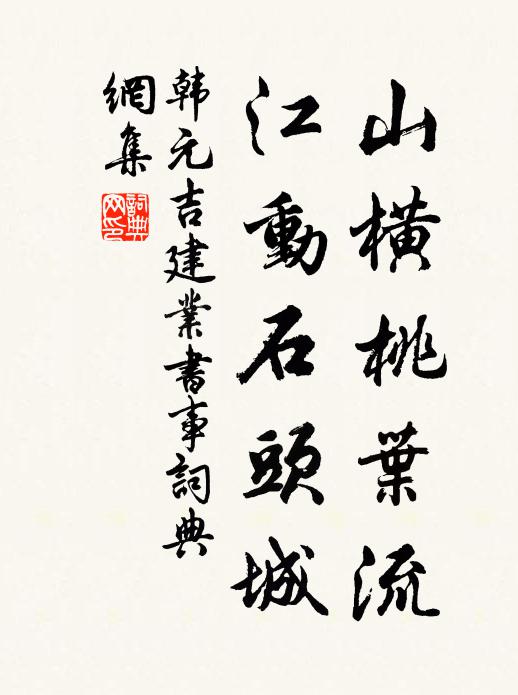 山橫桃葉流
江動石頭城
韩元吉建業書事詞典
網集
詞典
网印